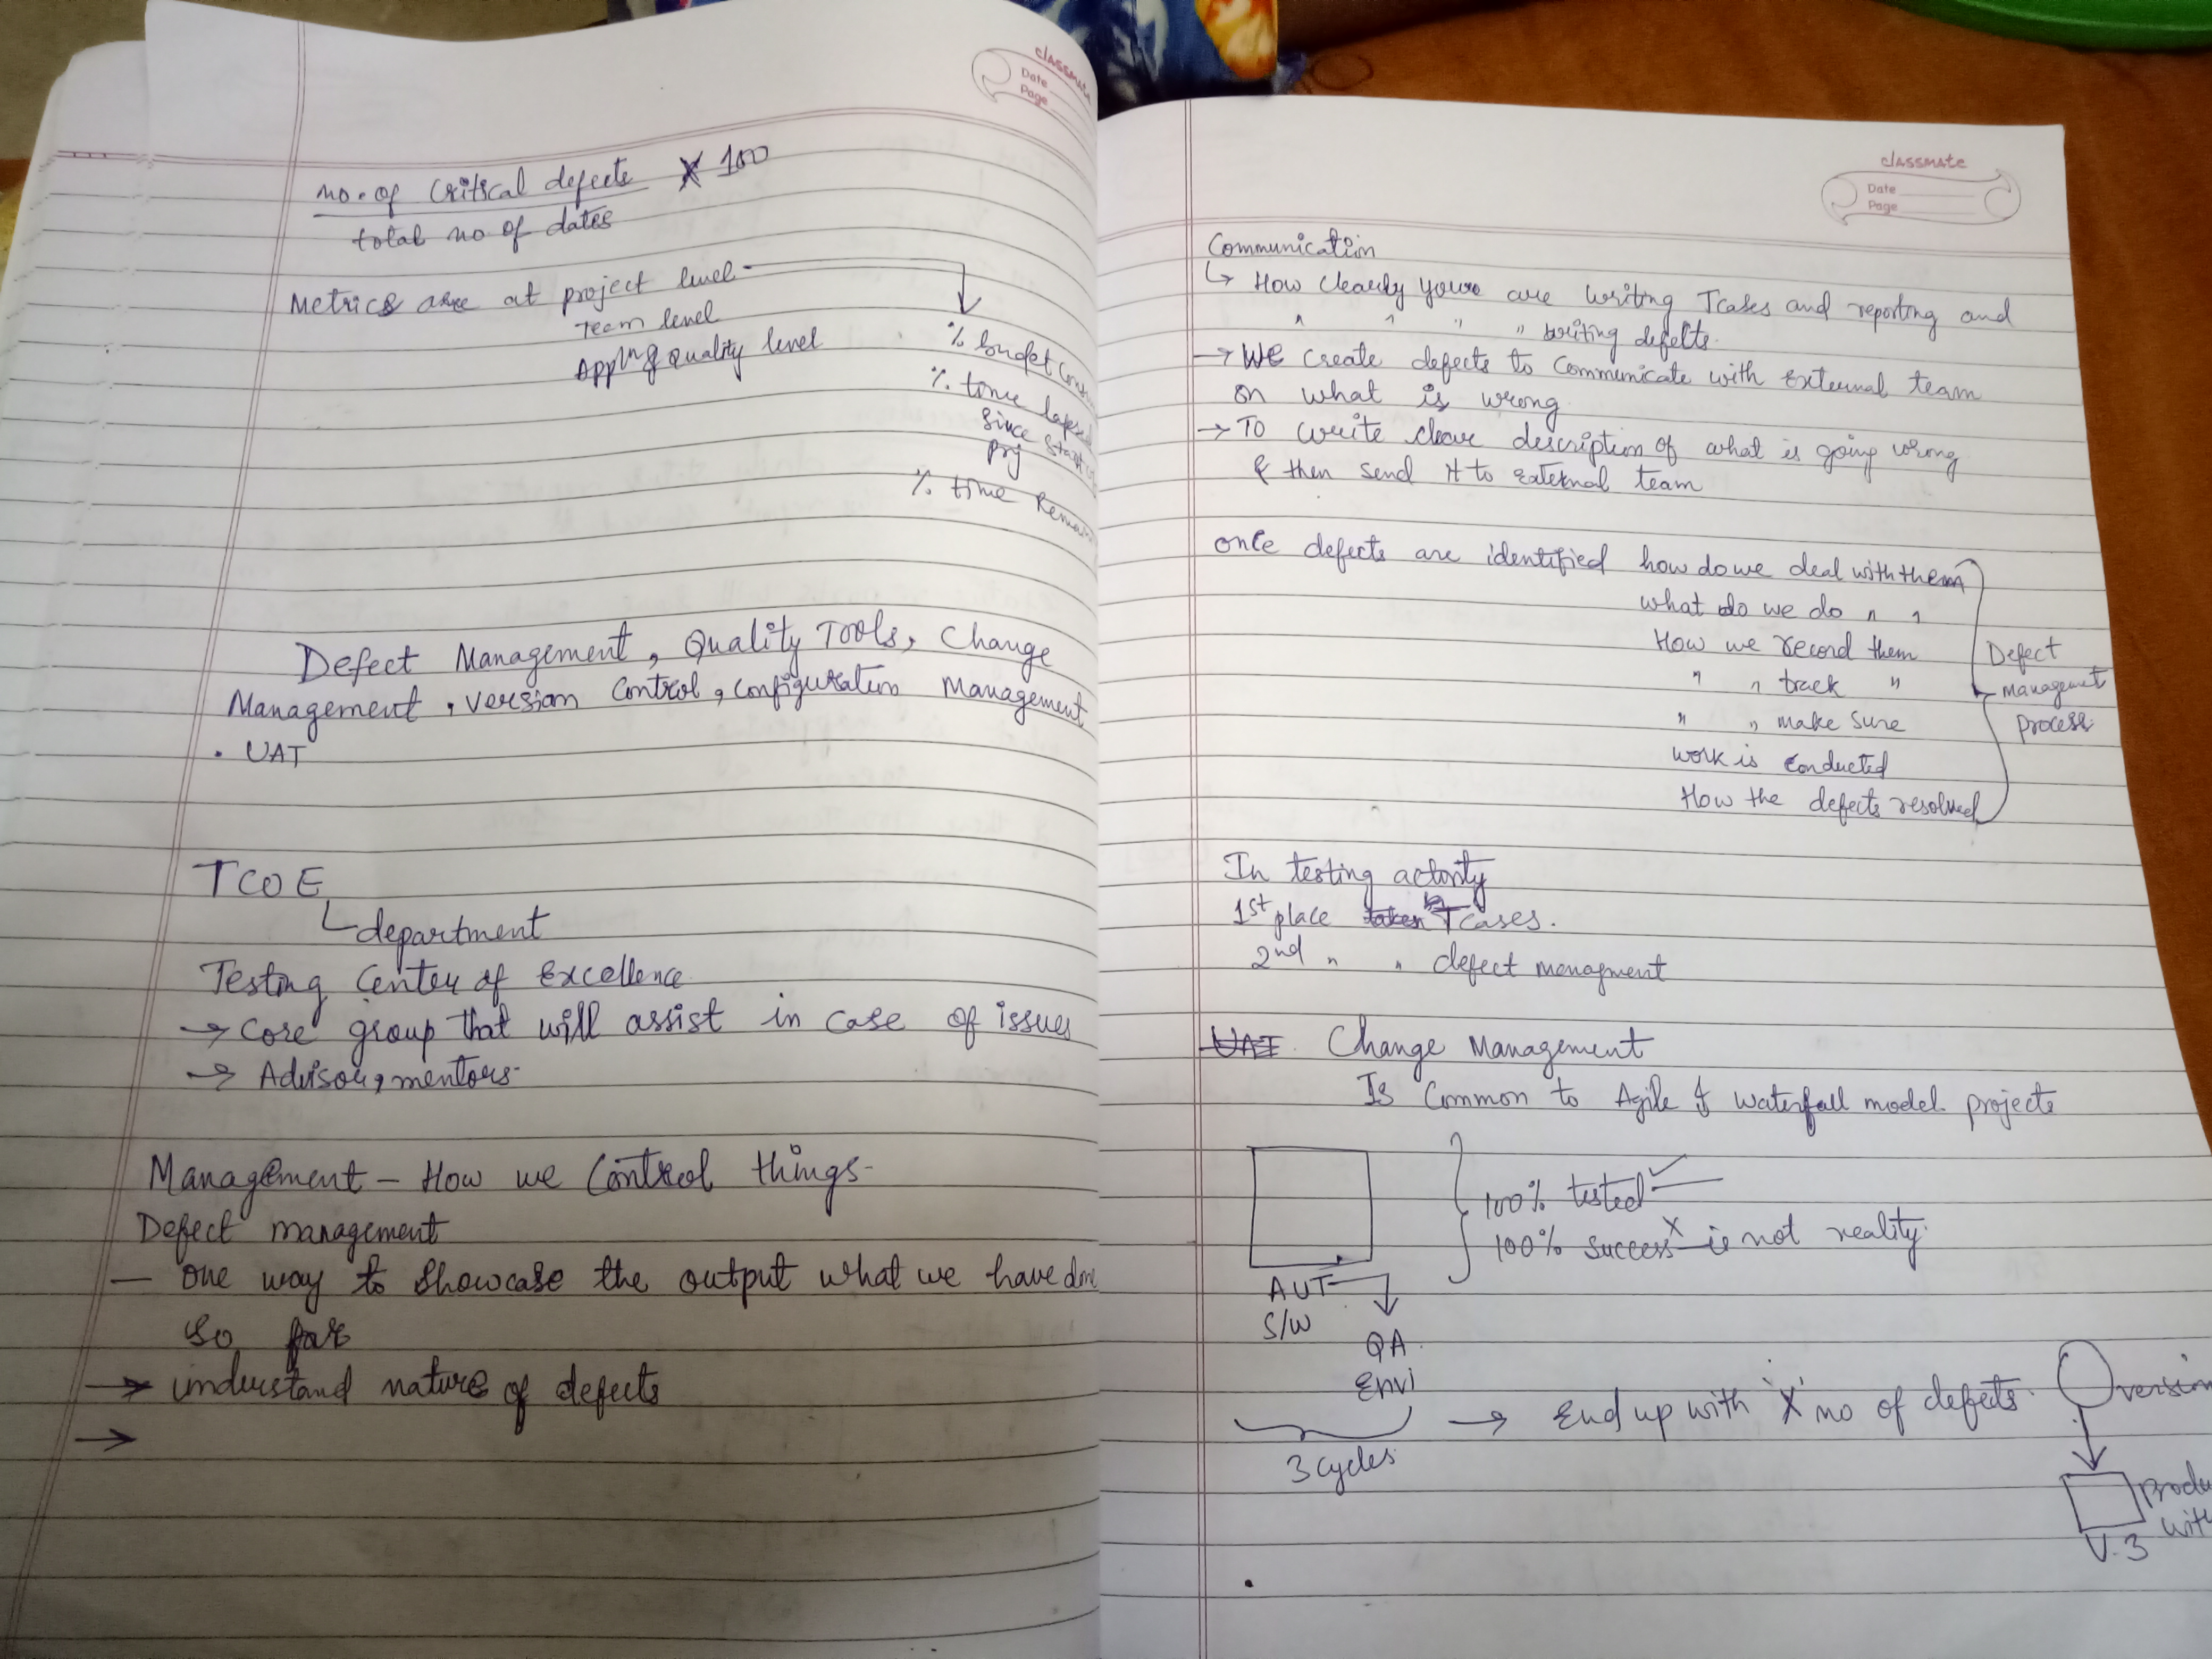 classmate
Date
Page
no. of Critical defects X 100
total no of dates
Metrics are at project level
Team level
Appln & Quality level
% budget
% time lapsed
Since start
prj
% time
Defect Management, Quality Tools, Change
Management, version control, configuration Management
. UAT
TCOE
department
Testing Center of Excellence
→ Core group that will assist in case of issues
→ Advisor, mentors.
Management - How we Control things-
Defect management
— One way to showcase the output what we have done
so far
→ understand nature of defects
→
classmate
Date
Page
Communication
↳ How clearly you are writing Tcases and reporting and
" " " " writing defects.
→ We create defects to communicate with external team
on what is wrong
→ To write clear description of what is going wrong
& then send it to external team
once defects are identified how do we deal with them
what do we do " "
How we record them
" " track "
" " make sure
work is conducted
How the defects resolved
Defect
Management
process
In testing activity
1st place Tcases.
2nd " " defect managment
UAT. Change Management
Is Common to Agile & waterfall model projects
100% tested ✓
100% success X is not reality.
AUT
S/W
QA
Envi
3 cycles
→ End up with 'X' no of defects.
version
V.3